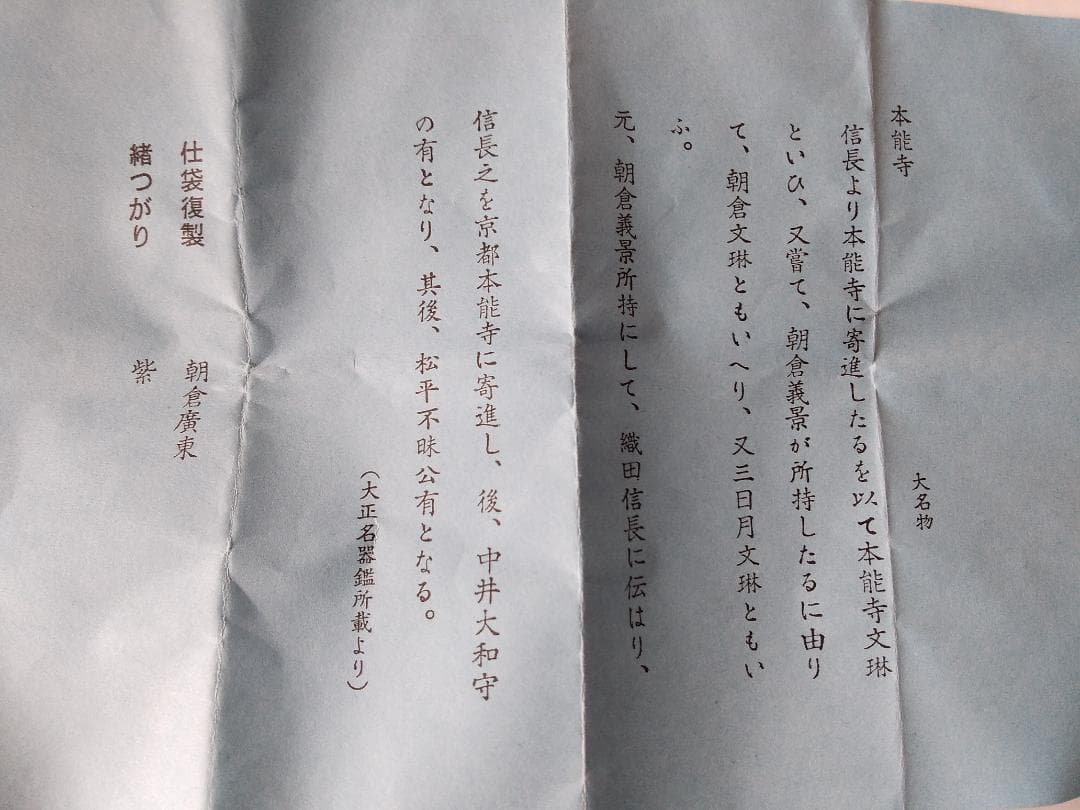 本能寺　大名物
信長より本能寺に寄進したるを以て本能寺文琳
といひ、又嘗て、朝倉義景が所持したるに由り
て、朝倉文琳ともいへり、又三日月文琳ともい
ふ。
元、朝倉義景所持にして、織田信長に伝はり、
信長之を京都本能寺に寄進し、後、中井大和守
の有となり、其後、松平不昧公有となる。
（大正名器鑑所載より）
仕袋復製　朝倉廣東
緒つがり　紫